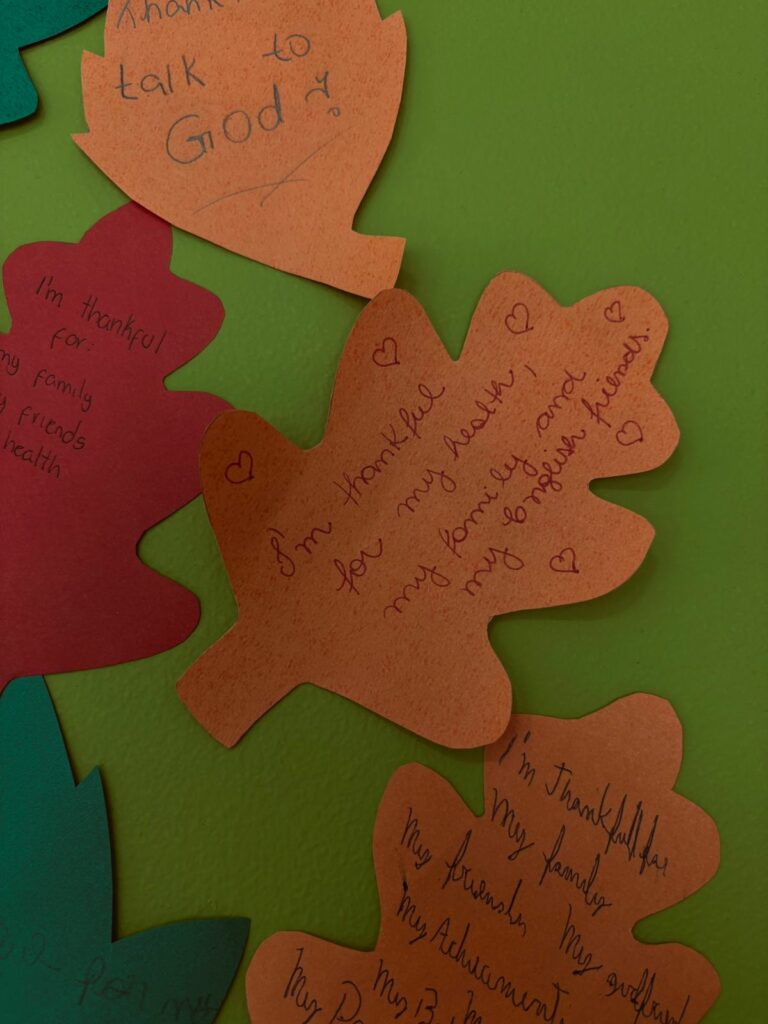 talk to
God?
I'm thankful
for:
my family
friends
health
I'm thankful
for my health,
my family and
my English friends.
I'm Thankfull for
My family
My friends
My girlfriend
My Achievement
My B